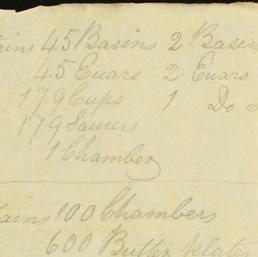 tains 45 Basins 2 Basin
45 Euars 2 Euars
179 Cups 1 Do
179 Saucers
1 Chamber
tains 100 Chambers
600 Butter plates